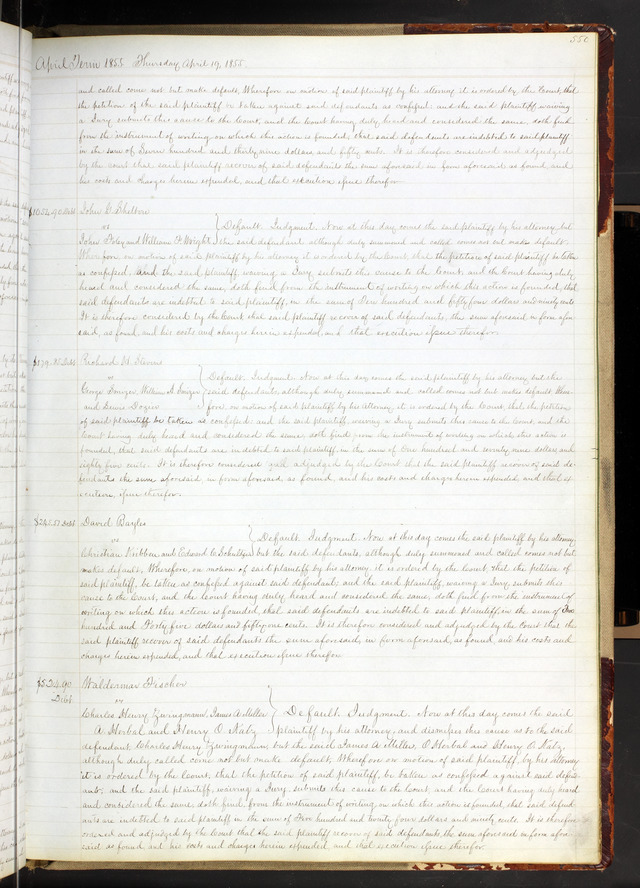 April Term 1855. Thursday April 19, 1855.
and called come not but make default, Wherefore on motion of said plaintiff by his attorney it is ordered by the Court, that
the petition of the said plaintiff be taken against said defendants as confessed and the said plaintiff, waiving
a Jury submits this cause to the Court, and the Court having duly heard and considered the same, doth find
from the instrument of writing on which this action is founded, that said defendants are indebted to said plaintiff
in the sum of Seven hundred and thirty nine dollars and fifty cents. It is therefore considered and adjudged
by the court that said plaintiff recover of said defendants the sum aforesaid in form aforesaid as found, and
his costs and charges herein expended, and that execution issue therefor.
$1054.90 Debt John C. Shelton
vs Default. Judgment. Now at this day comes the said plaintiff by his attorney, but
John Foley and William H. Wright, the said defendants although duly summoned and called comes not but makes default.
Wherefore, on motion of said plaintiff by his attorney it is ordered by the Court, that the petition of said plaintiff be taken
as confessed. and the said plaintiff waiving a Jury submits this cause to the Court, and the Court having duly
heard and considered the same, doth find from the instrument of writing on which this action is founded, that
said defendants are indebted to said plaintiff, in the sum of Ten hundred and fifty four dollars and ninety cents
It is therefore considered by the Court that said plaintiff recover of said defendants, the sum aforesaid in form afore
said, as found, and his costs and charges herein expended, and that execution issue therefor.
$179.85 Debt Richard M.
vs Default, Judgment Now at this day comes the said plaintiff by his attorney but the
George Dozier, William S. Dozier said defendants although duly summoned and called comes not but makes default Where
and Dozier fore, on motion of said plaintiff by his attorney, it is ordered by the Court, that the petition
of said plaintiff be taken as confessed. and the said plaintiff, waiving a Jury submits this cause to the Court, and the
Court having duly heard and considered the same, doth find from the instrument of writing on which this action is
founded, that said defendants are indebted to said plaintiff, in the sum of One hundred and seventy nine dollars and
eighty five cents. It is therefore considered and adjudged by the Court that the said plaintiff recover of said de-
fendants the sum aforesaid, in form aforesaid, as found, and his costs and charges herein expended and that ex
ecution issue therefor.
$245.51 Debt David Bayles
vs Default, Judgment. Now at this day comes the said plaintiff by his attorney,
Christian Kribben and Edward C. Schultze but the said defendants, although duly summoned and called comes not but
makes default, Wherefore, on motion of said plaintiff by his attorney, it is ordered by the Court, that the petition of
said plaintiff, be taken as confessed against said defendants, and the said plaintiff, waiving a Jury, submits this
cause to the Court, and the Court having duly heard and considered the same, doth find from the instrument of
writing on which this action is founded, that said defendants are indebted to said plaintiff, in the sum of Two
hundred and Forty five dollars and fifty one cents. It is therefore considered and adjudged by the Court that the
said plaintiff, recover of said defendants the sum aforesaid, in form aforesaid, as found, and his costs and
charges herein expended, and that execution issue therefor.
$524.90 Waldemar Fischer
Debt. vs
Charles Henry Zwingmann, James A. Miller Default. Judgment. Now at this day comes the said
A. Horbal and Henry O. Katz plaintiff by his attorney, and dismisses this cause as to the said
defendant Charles Henry Zwingmann, but the said James A. Miller, O Horbal and Henry O. Katz
although duly called come not but make default, Wherefore on motion of said plaintiff, by his attorney
it is ordered by the Court, that the petition of said plaintiff, be taken as confessed against said defend-
ants, and the said plaintiff, waiving a Jury, submits this cause to the Court, and the Court having duly heard
and considered the same, doth find, from the instrument of writing, on which this action is founded, that said defend-
ants are indebted to said plaintiff in the sum of Five hundred and twenty four dollars and ninety cents. It is therefore
considered and adjudged by the Court that the said plaintiff recover of said defendants, the sum aforesaid in form afore
said as found and his costs and charges herein expended and that execution issue therefor.